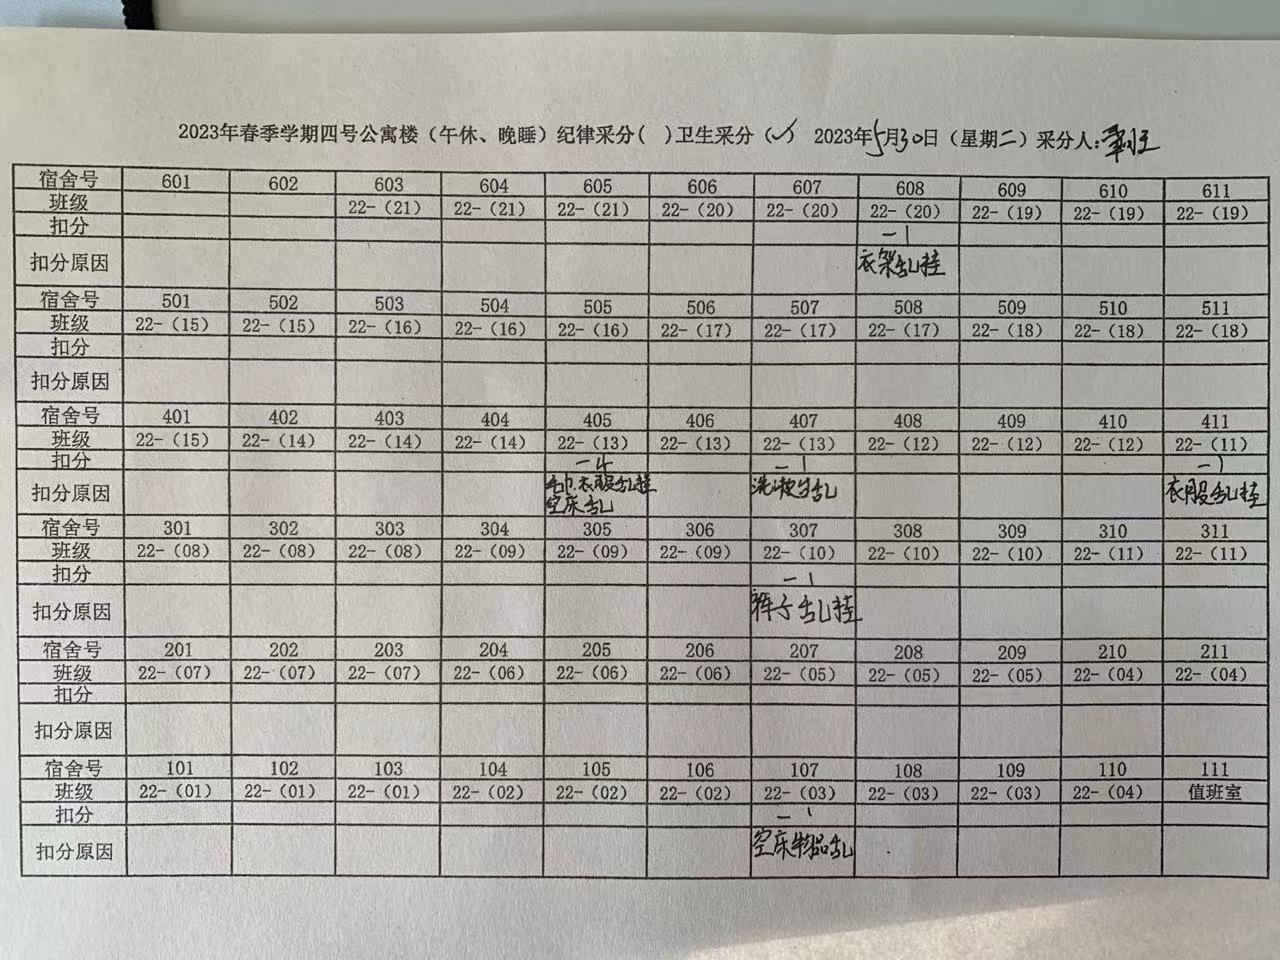 2023年春季学期四号公寓楼（午休、晚睡）纪律采分( )卫生采分（✓） 2023年5月30日（星期二）采分人:
宿舍号 601 602 603 604 605 606 607 608 609 610 611
班级 22-（21） 22-（21） 22-（21） 22-（20） 22-（20） 22-（20） 22-（19） 22-（19） 22-（19）
扣分 -1
扣分原因 衣架乱挂
宿舍号 501 502 503 504 505 506 507 508 509 510 511
班级 22-（15） 22-（15） 22-（16） 22-（16） 22-（16） 22-（17） 22-（17） 22-（17） 22-（18） 22-（18） 22-（18）
扣分
扣分原因
宿舍号 401 402 403 404 405 406 407 408 409 410 411
班级 22-（15） 22-（14） 22-（14） 22-（14） 22-（13） 22-（13） 22-（13） 22-（12） 22-（12） 22-（12） 22-（11）
扣分 -4 -1 -1
扣分原因 毛巾.衣服乱挂 洗漱台乱 衣服乱挂
空床乱
宿舍号 301 302 303 304 305 306 307 308 309 310 311
班级 22-（08） 22-（08） 22-（08） 22-（09） 22-（09） 22-（09） 22-（10） 22-（10） 22-（10） 22-（11） 22-（11）
扣分 -1
扣分原因 裤子乱挂
宿舍号 201 202 203 204 205 206 207 208 209 210 211
班级 22-（07） 22-（07） 22-（07） 22-（06） 22-（06） 22-（06） 22-（05） 22-（05） 22-（05） 22-（04） 22-（04）
扣分
扣分原因
宿舍号 101 102 103 104 105 106 107 108 109 110 111
班级 22-（01） 22-（01） 22-（01） 22-（02） 22-（02） 22-（02） 22-（03） 22-（03） 22-（03） 22-（04） 值班室
扣分 -1
扣分原因 空床物品乱